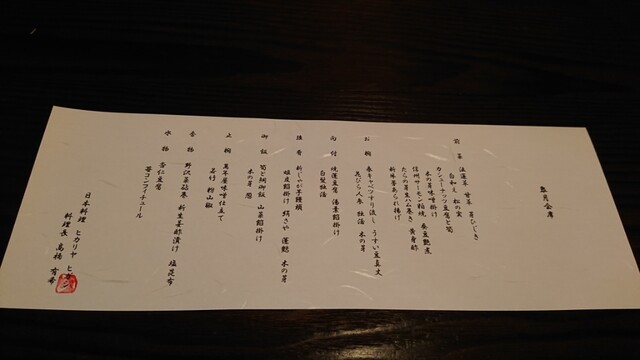 皐月会席
前菜 法蓮草 甘草 芽ひじき
白和え 松の実
カシューナッツ豆腐と筍
木の芽味噌掛け
信州サーモン粕焼 蚕豆艶煮
たらの芽生ハム巻き 黄身酢
新牛蒡あられ揚げ
お椀 春キャベツすり流し うすい豆真丈
花びら人参 独活 木の芽
向付 焼蓮豆腐 湯葉餡掛け
白髪独活
強肴 新じゃが芋饅頭
銀皮餡掛け 絹さや 蓮麩 木の芽
御飯 筍と鯛御飯 山菜餡掛け
木の芽
止椀 萬年味噌仕立て
若竹 粉山椒
香物 野沢菜砧巻 新生姜酢漬け 塩昆布
水物 杏仁豆腐
苺コンフィチュール
日本料理 ヒカリヤ ヒガシ
料理長 髙橋